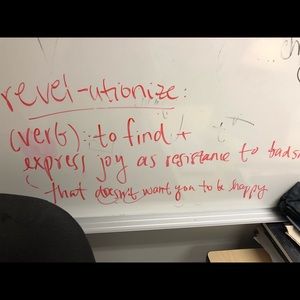 revel-utionize:
(verb): to find +
express joy as resistance to
that doesn't want you to be happy